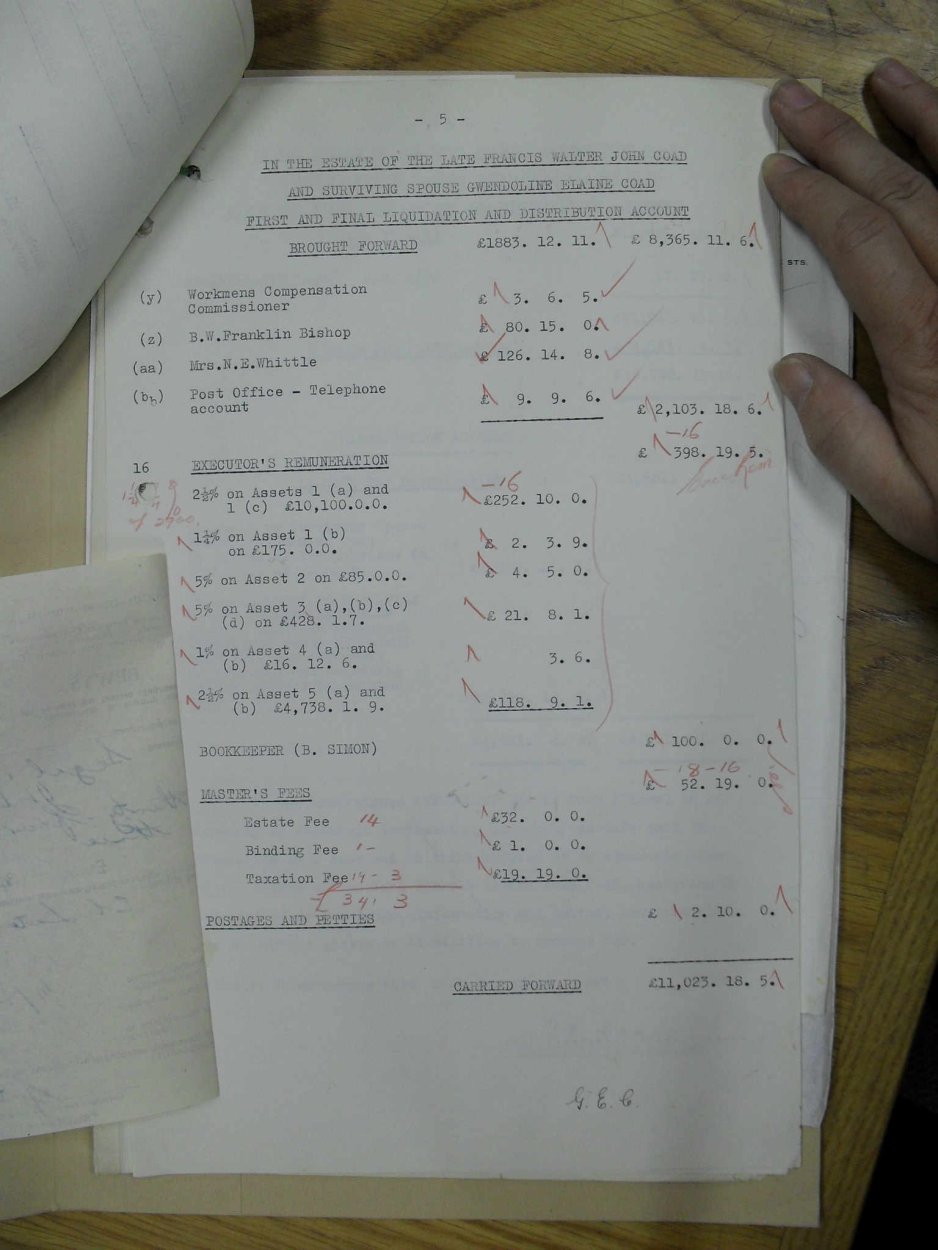 - 5 -
IN THE ESTATE OF THE LATE FRANCIS WALTER JOHN COAD
AND SURVIVING SPOUSE GWENDOLINE ELAINE COAD
FIRST AND FINAL LIQUIDATION AND DISTRIBUTION ACCOUNT
BROUGHT FORWARD £1883. 12. 11. £ 8,365. 11. 6.
STS.
(y) Workmens Compensation
Commissioner £ 3. 6. 5.
(z) B.W.Franklin Bishop £ 80. 15. 0.
(aa) Mrs.N.E.Whittle £ 126. 14. 8.
(bb) Post Office - Telephone
account £ 9. 9. 6. £ 2,103. 18. 6.
-16
£ 398. 19. 5.
16 EXECUTOR'S REMUNERATION
-16
2½% on Assets 1 (a) and £252. 10. 0.
1 (c) £10,100.0.0.
1¼% on Asset 1 (b)
on £175. 0.0. £ 2. 3. 9.
5% on Asset 2 on £85.0.0. £ 4. 5. 0.
5% on Asset 3 (a),(b),(c)
(d) on £428. 1.7. £ 21. 8. 1.
1% on Asset 4 (a) and
(b) £16. 12. 6. 3. 6.
2½% on Asset 5 (a) and
(b) £4,738. 1. 9. £118. 9. 1.
BOOKKEEPER (B. SIMON) £ 100. 0. 0.
-18-16
£ 52. 19. 0.
MASTER'S FEES
Estate Fee 14 £32. 0. 0.
Binding Fee 1- £ 1. 0. 0.
Taxation Fee 19-3 £19. 19. 0.
£34. 3
POSTAGES AND PETTIES £ 2. 10. 0.
CARRIED FORWARD £11,023. 18. 5.
G. E. C.